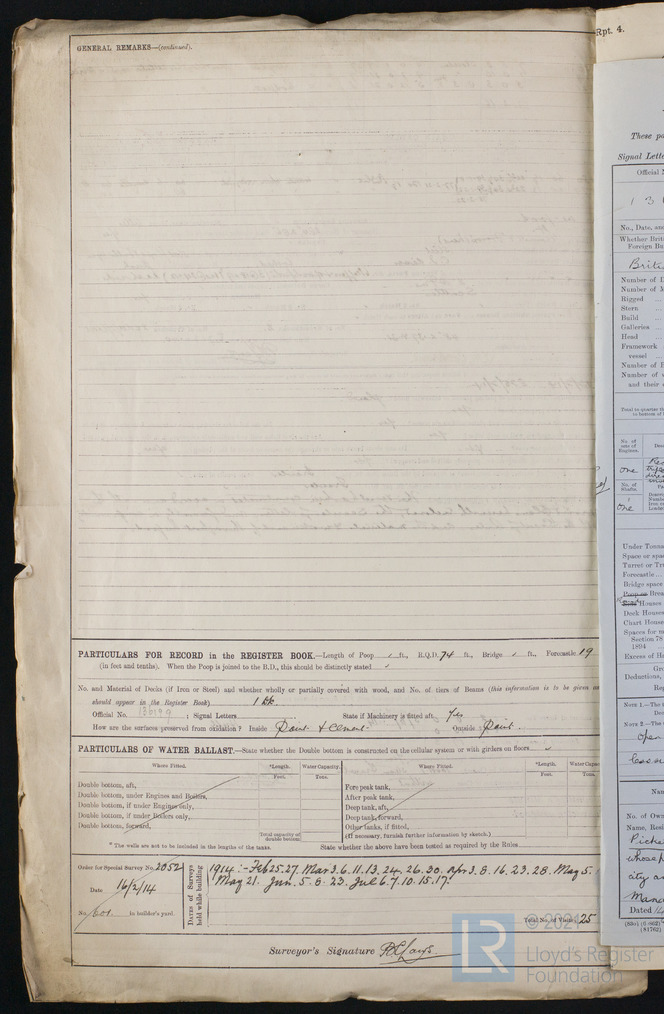 GENERAL REMARKS—(continued).
PARTICULARS FOR RECORD in the REGISTER BOOK.—Length of Poop ft., R.Q.D. 74 ft., Bridge ft., Forecastle 19
(in feet and tenths). When the Poop is joined to the B.D., this should be distinctly stated
No. and Material of Decks (if Iron or Steel) and whether wholly or partially covered with wood, and No. of tiers of Beams (this information is to be given as
should appear in the Register Book) 1 Dk.
Official No. ; Signal Letters State if Machinery is fitted aft. Yes
How are the surfaces preserved from oxidation? Inside Paint & Cement Outside Paint
PARTICULARS OF WATER BALLAST.—State whether the Double bottom is constructed on the cellular system or with girders on floors
Where Fitted. *Length. Water Capacity. Where Fitted. *Length. Water Capac
Feet. Tons. Feet. Tons.
Double bottom, aft, Fore peak tank,
Double bottom, under Engines and Boilers, After peak tank,
Double bottom, if under Engines only, Deep tank, aft,
Double bottom, if under Boilers only, Deep tank, forward,
Double bottom, forward, Other tanks, if fitted,
Total capacity of double bottom (If necessary, furnish further information by sketch.)
* The wells are not to be included in the lengths of the tanks. State whether the above have been tested as required by the Rules
Order for Special Survey No. 2052
Date 16/2/14
No. 601 in builder's yard.
Dates of Surveys held while building
1914:- Feb 25. 27. Mar 3. 6. 11. 13. 24. 26. 30. Apr 3. 8. 16. 23. 28. May 5.
May 21. Jun. 5. 8. 23. Jul 6. 7. 10. 15. 17.
Total No. of Visits 25
Surveyor's Signature
© 2021
LR
Lloyd's Register
Foundation
Rpt. 4.
These pa
Signal Lette
Official N
1 3
No., Date, and
Whether Briti
Foreign Bu
Brit
Number of D
Number of M
Rigged
Stern
Build
Galleries
Head
Framework
vessel
Number of B
Number of
and their
No. of sets of Engines.
One
No. of Shafts.
One
Under Tonna
Space or spac
Turret or Tr
Forecastle
Bridge space
Houses
Deck Houses
Chart House
Spaces for m
Section 78
1894
Excess of Ha
Gro
Deductions,
Reg
NOTE 1.—The
NOTE 2.—The
Open
Nam
No. of Owne
Name, Resi
Picke
whose p
city an
Manc
Dated